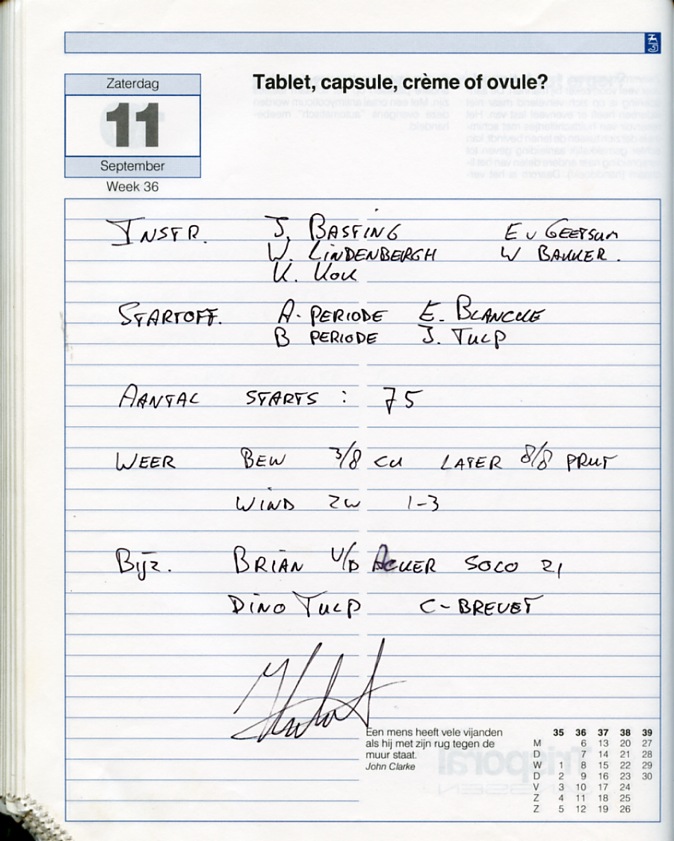 Zaterdag
11
September
Week 36
Tablet, capsule, crème of ovule?
INSTR. J. BASTING E v GEETSUM
W. LINDENBERGH W BAKKER.
K. KOK
STARTOFF. A. PERIODE E. BLANCKE
B PERIODE J. TULP
AANTAL STARTS : 75
WEER BEW 3/8 CU LATER 8/8 PRUT
WIND ZW 1-3
Bijz. BRIAN V/D ACKER SOLO 21
DINO TULP C-BREVET
Een mens heeft vele vijanden
als hij met zijn rug tegen de
muur staat.
John Clarke
35 36 37 38 39
M 6 13 20 27
D 7 14 21 28
W 1 8 15 22 29
D 2 9 16 23 30
V 3 10 17 24
Z 4 11 18 25
Z 5 12 19 26